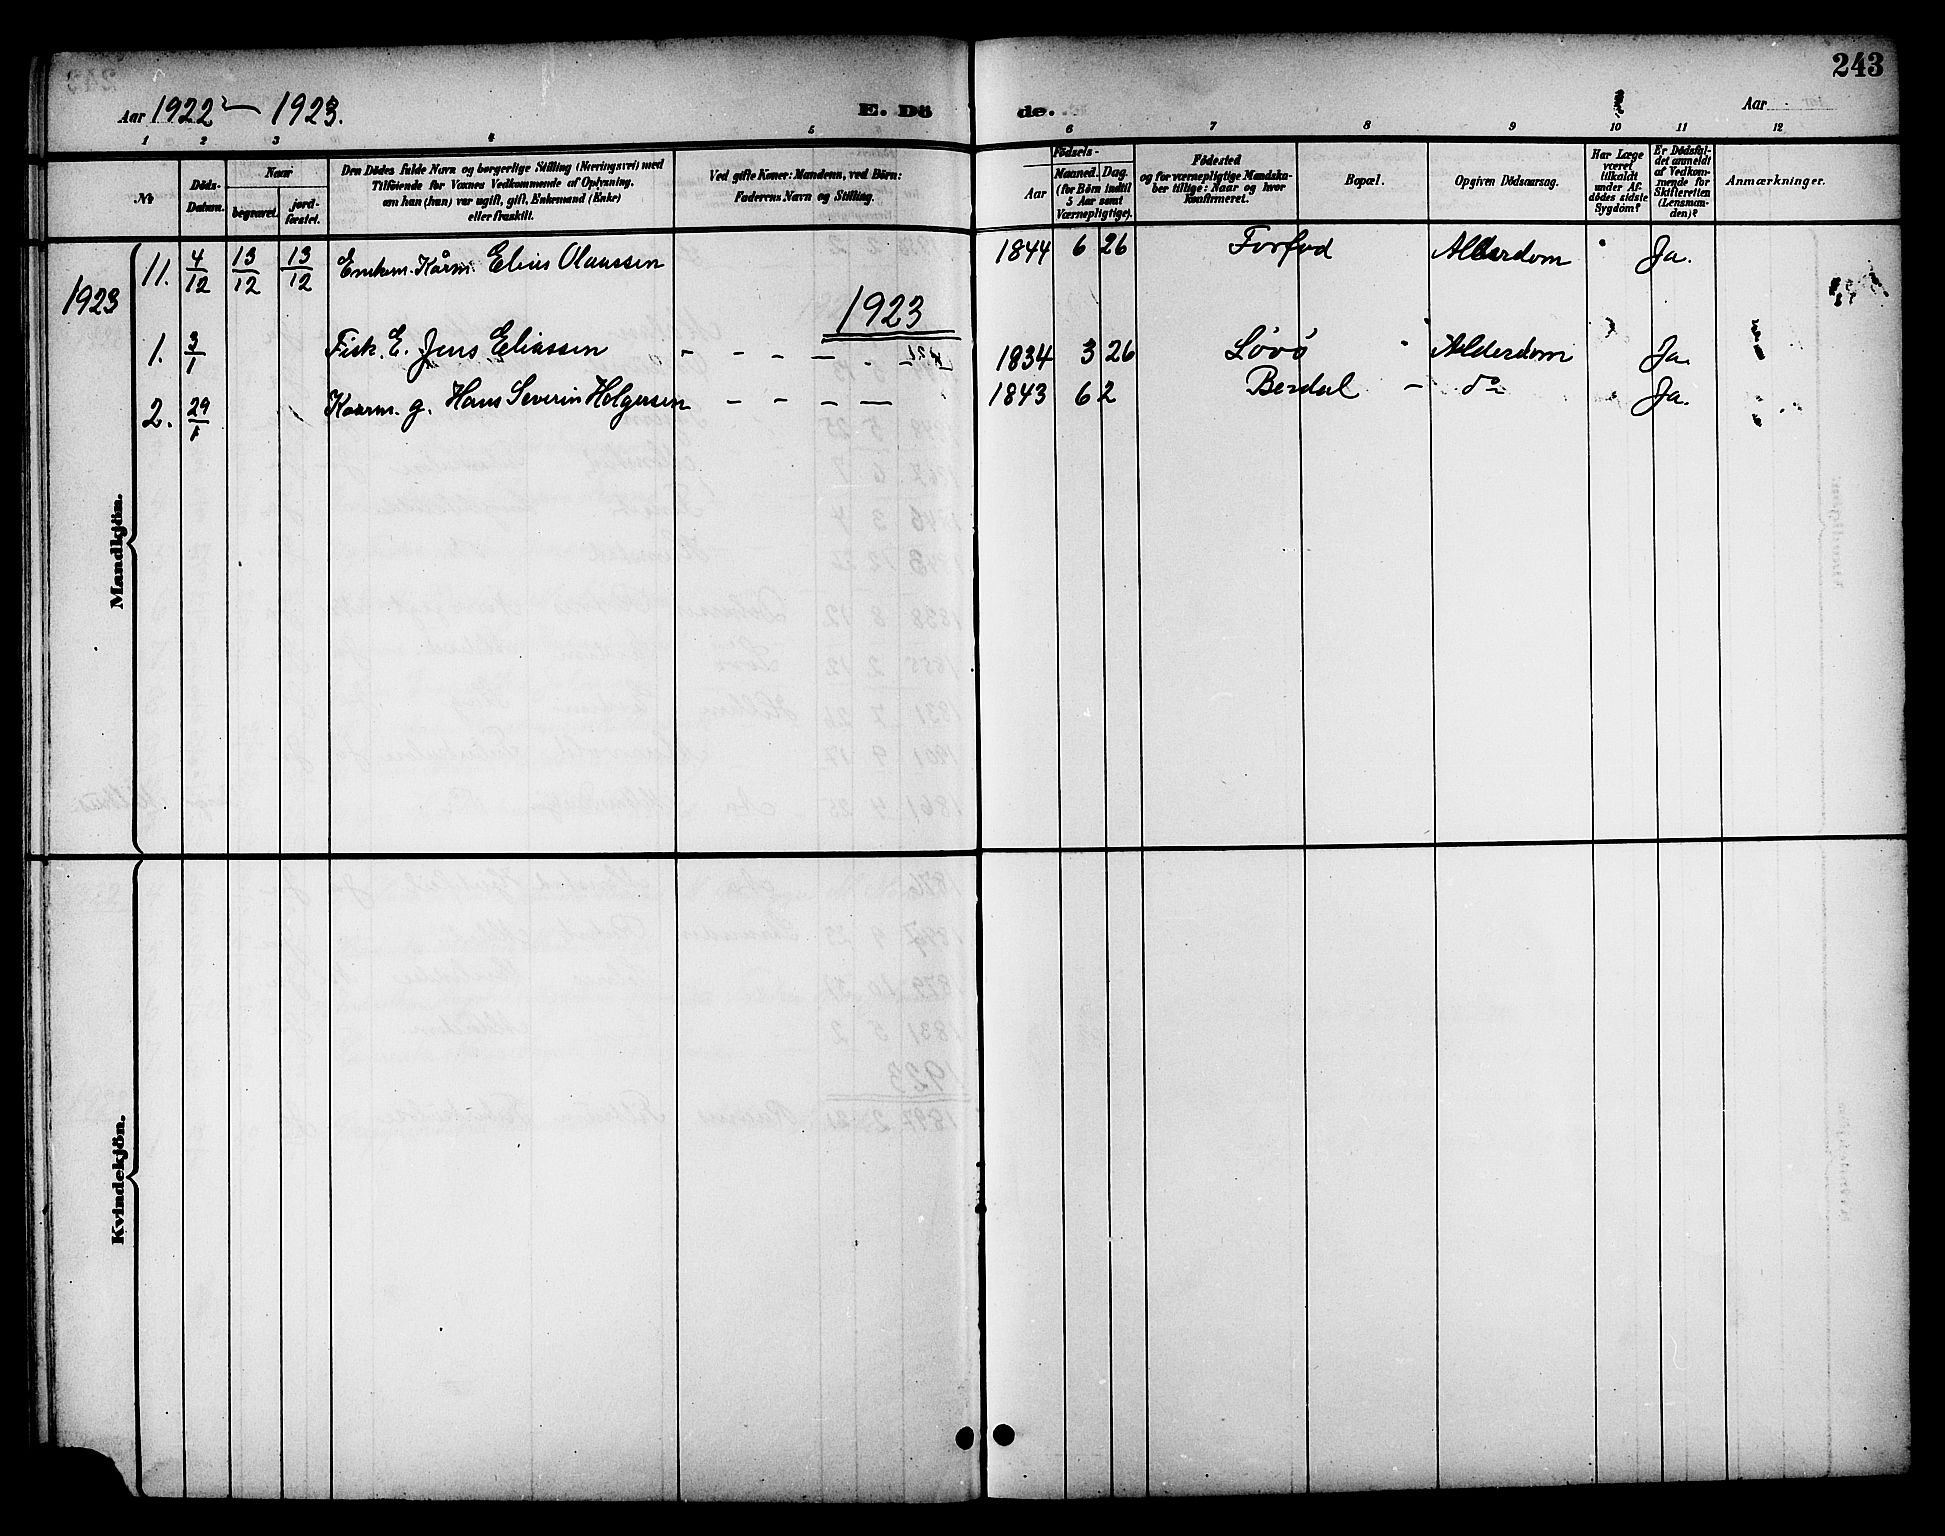 243
Aar 1922 – 1923. E. Dö de. Aar
1 2 3 4 5 6 7 8 9 10 11 12
№
Döds-
Datum.
Naar
begravet.
jord-
fæstet.
Den Dödes fulde Navn og borgerlige Stilling (Næringsvei) med
Tilföiende for Voxnes Vedkommende af Oplysning,
om han (hun) var ugift, gift, Enkemand (Enke)
eller fraskilt.
Ved gifte Koner: Mandens, ved Börn:
Faderens Navn og Stilling.
Födsels-
Aar
Maaned. Dag.
(for Börn indtil
5 Aar samt
Værnepligtige).
Födested
og for værnepligtige Mandska-
ber tillige: Naar og hvor
konfirmeret.
Bopæl.
Opgiven Dödsaarsag.
Har Læge
været
tilkaldt
under Af-
dödes sidste
Sygdöm?
Er Dödsfal-
det anmeldt
af Vedkom-
mende for
Skifteretten
(Lensman-
den)?
Anmærkninger.
11. 4/12 13/12 13/12 Enkem. Kårm. Elias Olaussen 1844 6 26 Forfod Alderdom Ja.
1923
1923
1. 3/1 Fisk. E. Jens Eliassen – – – – 1834 3 26 Lövö Alderdom Ja.
2. 29/1 Kaarm. g. Hans Severin Helgesen – – – – 1843 6 2 Berdal – do Ja.
Mandkjön.
Kvindekjön.